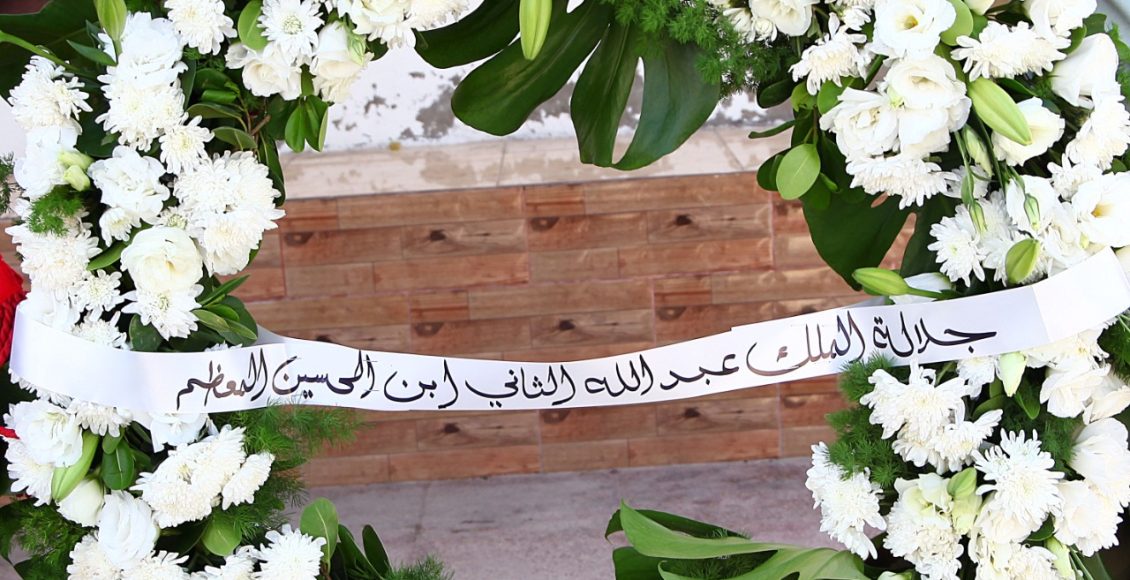 جلالة الملك عبد الله الثاني ابن الحسين المعظم